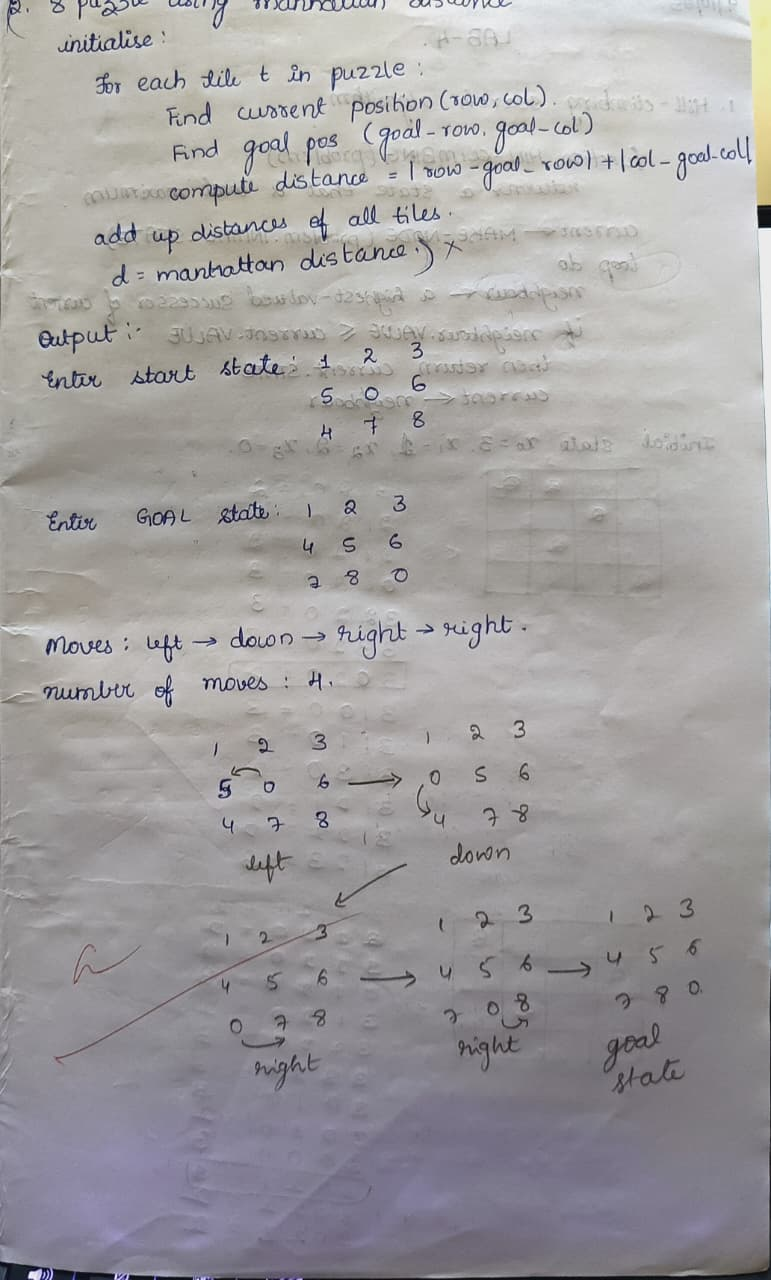 2. 8 puzzle using manhattan distance
initialise :
For each tile t in puzzle :
Find current position (row, col).
Find goal pos (goal-row, goal-col)
compute distance = | row - goal-row| + |col - goal-col|
add up distances of all tiles.
d = manhattan distance.) x
Output :-
Enter start state: 1 2 3
5 0 6
4 7 8
Enter GOAL state: 1 2 3
4 5 6
7 8 0
Moves : left → down → right → right.
number of moves : 4.
1 2 3 1 2 3
5 0 6 → 0 5 6
4 7 8 4 7 8
left down
1 2 3 1 2 3 1 2 3
4 5 6 → 4 5 6 → 4 5 6
0 7 8 7 0 8 7 8 0.
right right goal
state